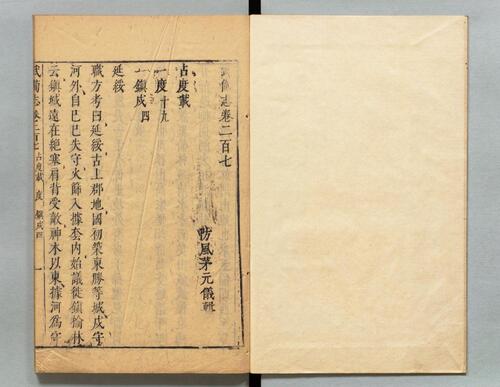 武備志卷二百七
防風茅元儀輯
占度載
度十九
鎮戍四
延綏
職方考曰延綏古上郡地國初築東勝等城戍守
河外自己巳失守火篩入據套內始議徙鎮榆林
云鎮城遠在絕塞肩背受敵神木以東據河為守
武備志卷二百七 占度載 度 鎮戍四 一